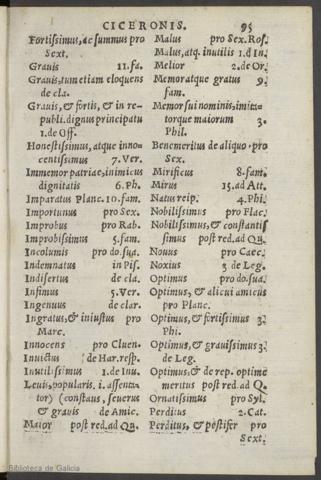 CICERONIS. 95
Fortissimus, ac summus pro
Sext.
Grauis 11.fa.
Grauis, tum etiam eloquens
de cla.
Grauis, & fortis, & in re-
publi. dignus principatu
1.de Off.
Honestissimus, atque inno-
centissimus 7.Ver.
Immemor patriae, inimicus
dignitatis 6.Ph.
Imparatus Planc.10.fam.
Importunus pro Sex.
Improbus pro Rab.
Improbissimus 5.fam.
Incolumis pro do.sua.
Indemnatus in Pis.
Indisertus de cla.
Infimus 5.Ver.
Ingenuus de clar.
Ingratus, & iniustus pro
Marc.
Innocens pro Cluen.
Inuictus de Har.resp.
Inutilissimus 1.de Inu.
Leuis, popularis. i. assenta-
tor) (constans, seuerus
& grauis de Amic.
Maior post red.ad Qu.
Malus pro Sex.Ros.
Malus, atq. inutilis 1.d In.
Melior 2.de Or.
Memor atque gratus 9.
fam.
Memor sui nominis, imita-
torque maiorum 3.
Phil.
Benemeritus de aliquo pro
Sex.
Mirificus 8.fam.
Mirus 15.ad Att.
Natus reip. 4.Phi.
Nobilissimus pro Flac.
Nobilissimus, & constantis
simus post red.ad Qu.
Nouus pro Caec.
Noxius 3 de Leg.
Optimus pro do.sua.
Optimus, & alicui amicus
pro Planc.
Optimus, & fortissimus 3.
Phi.
Optimus, & grauissimus 3.
de Leg.
Optimus, & de rep. optime
meritus post red.ad Q.
Ornatissimus pro Syl.
Perditus 2.Cat.
Perditus, & pestifer pro
Sext.
Biblioteca de Galicia